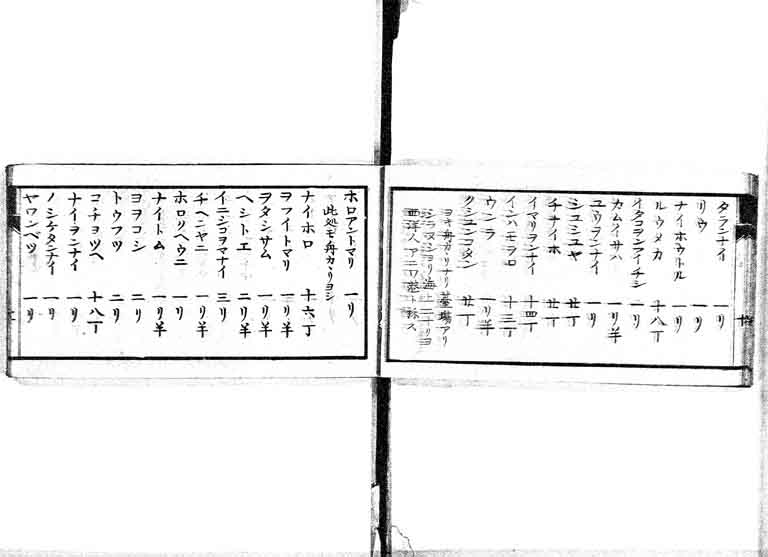 タランナイ 一リ
リウ 一リ
ナイホウトル 一リ
ルウメカ 十八丁
イタコヲンフイチシ 一リ
カムイサハ 一リ半
ユウヲンナイ 一リ
シユシユヤ 廿丁
チナイホ 廿丁
イマリヲンナイ 十四丁
インハモヲロ 十三丁
ウンラ 一リ半
クシユンコタン 廿丁
ヨキ舟カヽリナリ 墓場アリ
ホロアントマリ 一リ
此処モ舟カヽリヨシ
ナイホロ 十六丁
ヲフイトマリ 一リ半
ヲタシサム 一リ半
ヘシトエ 二リ半
イニシコヲマナイ 三リ
チヘシヤニ 一リ半
ホロリヘウニ 一リ
ナイトム 一リ半
ヨヲコシ 二リ
トウフツ 二リ
コチヨツヘ 十八丁
ナイヲンナイ 一リ
ノシケタンナイ 一リ
ヤワンベツ 一リ